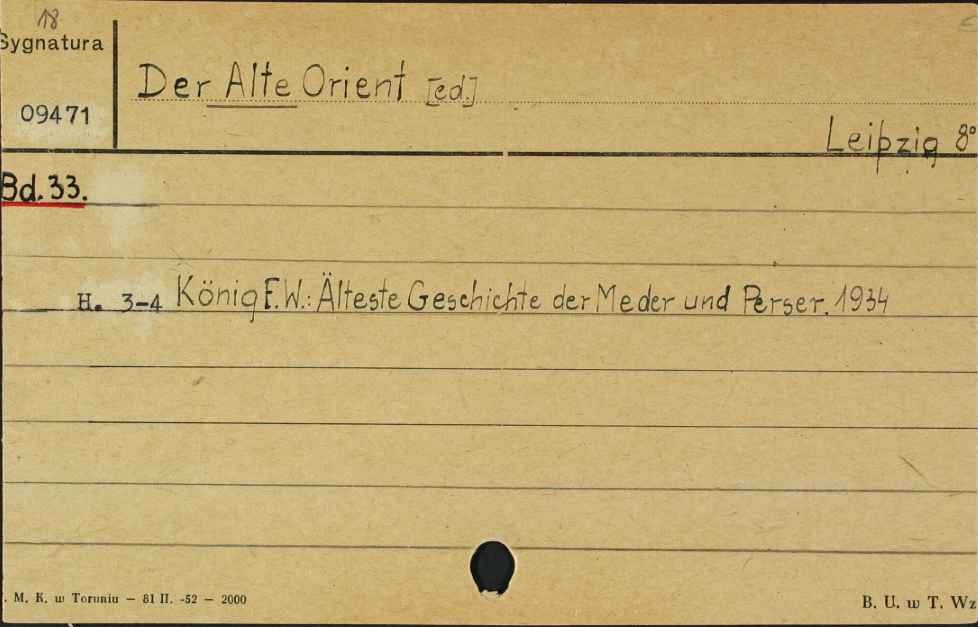 18
Sygnatura
09471
Der Alte Orient [ed.]
Leipzig 8°
Bd. 33.
H. 3-4 König F.W.: Älteste Geschichte der Meder und Perser. 1934
. M. K. w Toruniu — 81 II. -52 — 2000
B. U. w T. Wz